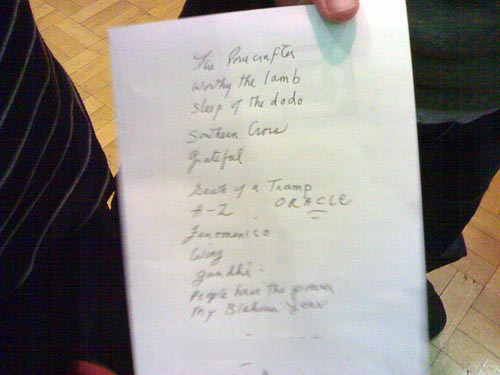 The Lovecrafter
Worthy the lamb
Sleep of the dodo
Southern Cross
Grateful
Death of a Tramp
A-Z ORACLE
Fenomenico
Wing
gandhi.
People have the power
My Blakean Year